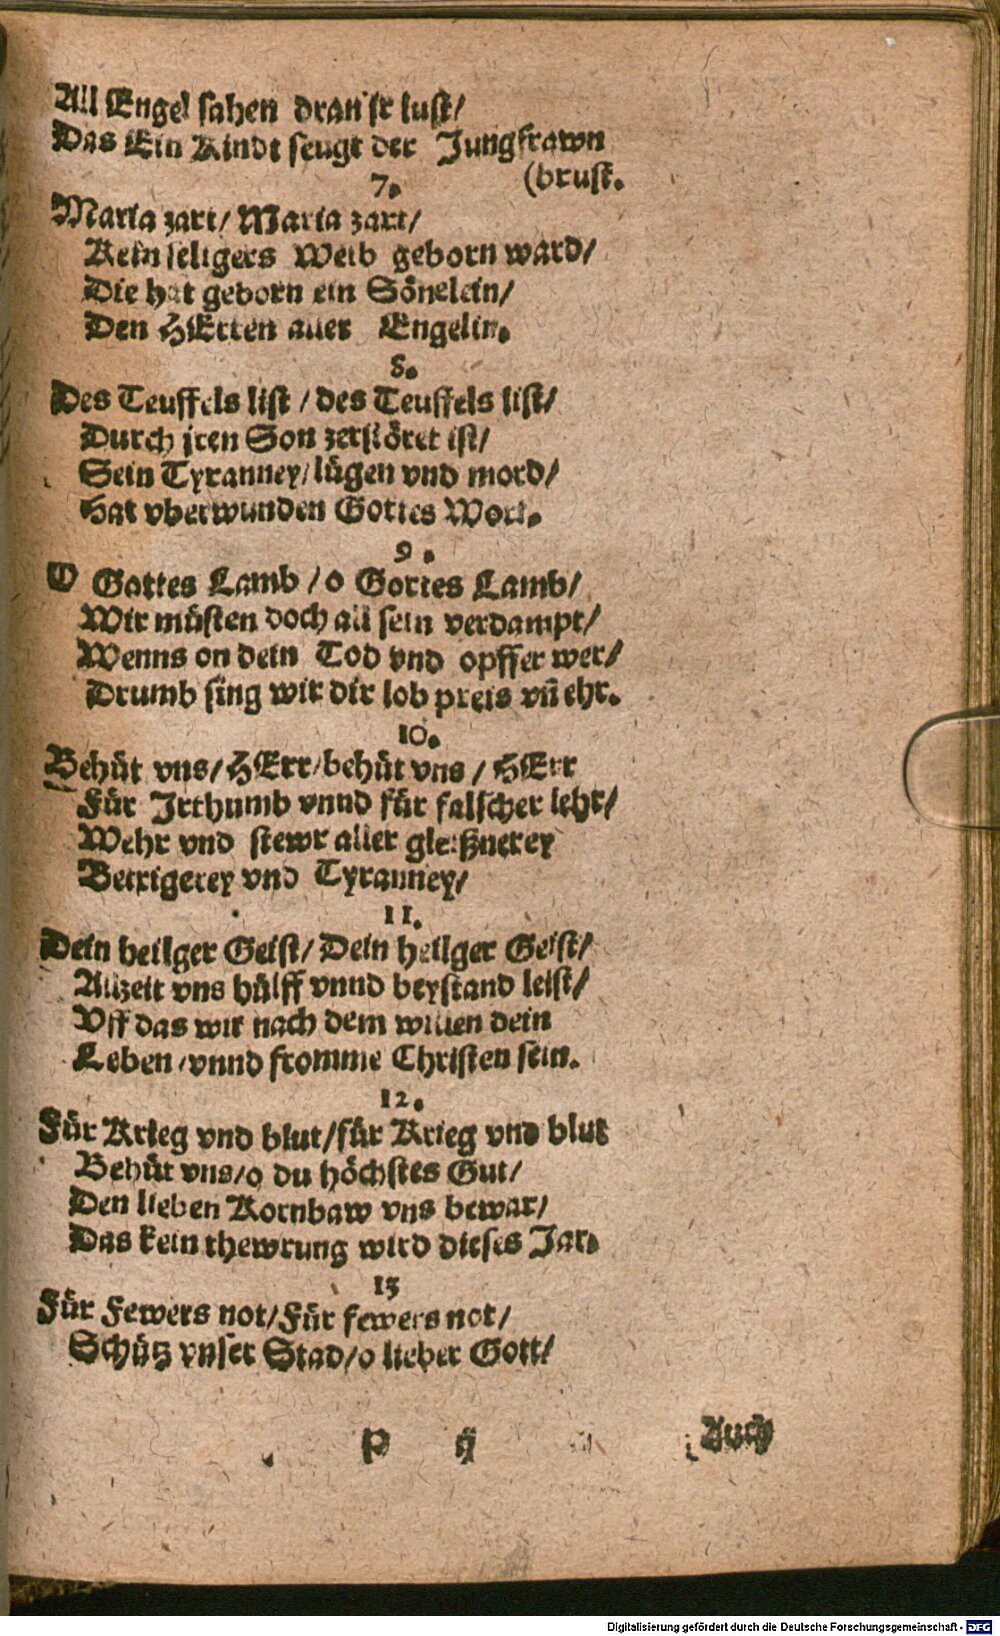 All Engel sahen dran jr lust/
Das Ein Kindt seugt der Jungfrawn
(brust.
7.
Maria zart/ Maria zart/
Kein seligers Weib geborn ward/
Die hat geborn ein Sönelein/
Den HErren aller Engelin.
8.
Des Teuffels list / des Teuffels list/
Durch jren Son zerstöret ist/
Sein Tyranney/ lügen vnd mord/
Hat vberwunden Gottes Wort.
9.
O Gottes Lamb / o Gottes Lamb/
Wir müsten doch all sein verdampt/
Wenns on dein Tod vnd opffer wer/
Drumb sing wir dir lob preis vñ ehr.
10.
Behüt vns/ HErr/ behüt vns / HErr
Für Irthumb vnnd für falscher lehr/
Wehr vnd stewr aller gleißnerey
Betrigerey vnd Tyranney/
11.
Dein heilger Geist/ Dein heilger Geist/
Allzeit vns hülff vnnd beystand leist/
Vff das wir nach dem willen dein
Leben/ vnnd fromme Christen sein.
12.
Für Krieg vnd blut/ für Krieg vnd blut
Behüt vns/ o du höchstes Gut/
Den lieben Kornbaw vns bewar/
Das kein thewrung wird dieses Jar.
13
Für Fewers not/ Für fewers not/
Schütz vnser Stad/ o lieber Gott/
P ij Auch
Digitalisierung gefördert durch die Deutsche Forschungsgemeinschaft - DFG